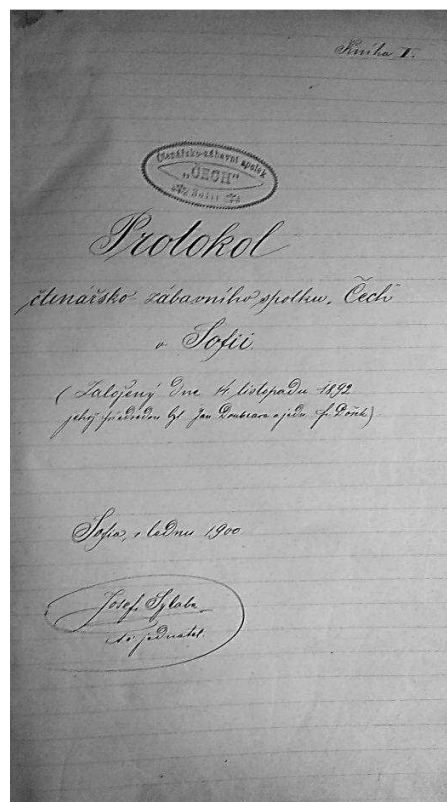 Kniha I.
Čtenářsko-zábavní spolek
„ČECH“
Protokol
čtenářsko-zábavního spolku „Čech“
v Sofii.
(Založený dne 14 listopadu 1892
jehož předsedou byl Jan Doubrava a jedn. Fr.
Sofia, v lednu 1900
Josef
jednatel.